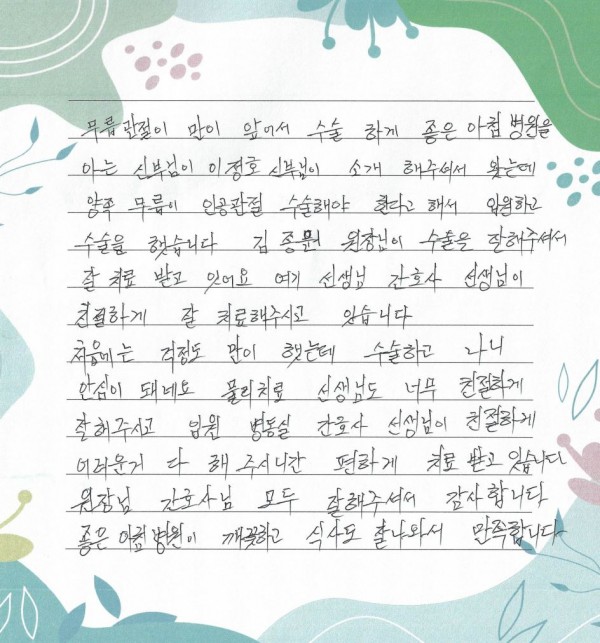 무릎관절이 많이 앞어서 수술 하게 좋은아침병원을
아는 신부님이 이정호 신부님이 소개 해주셔서 왔는데
양쪽 무릎이 인공관절 수술해야 한다고 해서 입원하고
수술을 했습니다 김종원 원장님이 수술을 잘해주셔서
잘 치료 받고 잇어요 여기 선생님 간호사 선생님이
친절하게 잘 치료해주시고 있습니다
처음에는 걱정도 많이 했는데 수술하고 나니
안심이 돼네요 물리치료 선생님도 너무 친절하게
잘해주시고 입원 병동실 간호사 선생님이 친절하게
어려운거 다 해 주시니간 편하게 치료 받고 있습니다
원장님 간호사님 모두 잘해주셔서 감사합니다
좋은아침병원이 깨끗하고 식사도 잘나와서 만족합니다